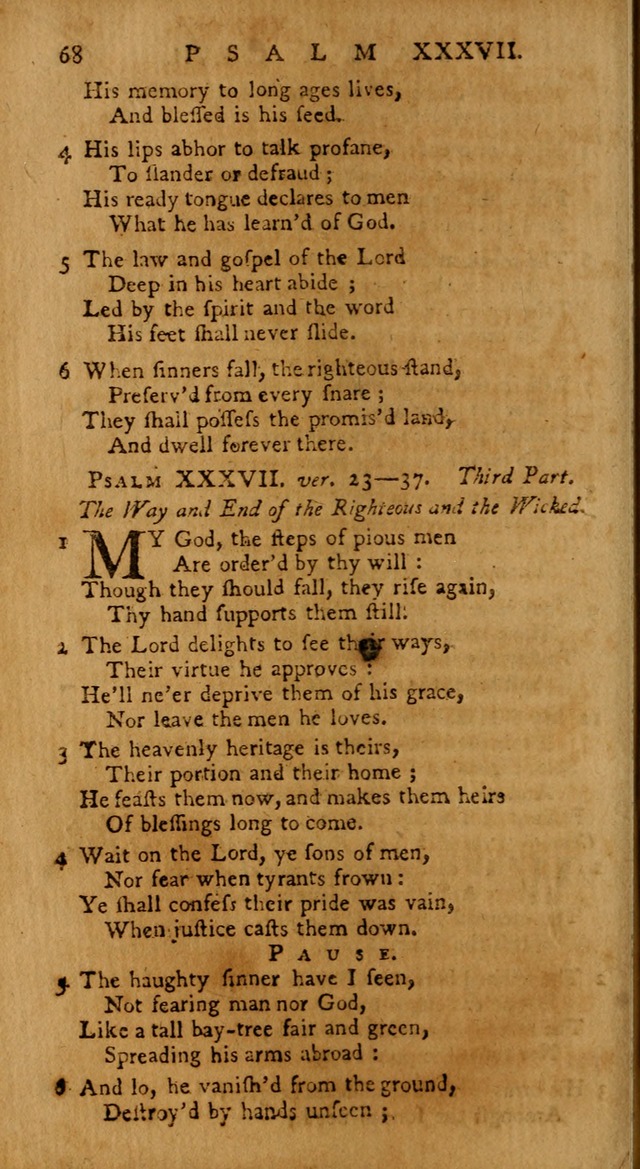 68 PSALM XXXVII.
His memory to long ages lives,
And bleſſed is his ſeed.
4 His lips abhor to talk profane,
To ſlander or defraud ;
His ready tongue declares to men
What he has learn'd of God.
5 The law and goſpel of the Lord
Deep in his heart abide ;
Led by the ſpirit and the word
His feet ſhall never ſlide.
6 When ſinners fall, the righteous ſtand,
Preſerv'd from every ſnare ;
They ſhall poſſeſs the promis'd land,
And dwell forever there.
PSALM XXXVII. ver. 23—37. Third Part.
The Way and End of the Righteous and the Wicked.
1 MY God, the ſteps of pious men
Are order'd by thy will :
Though they ſhould fall, they riſe again,
Thy hand ſupports them ſtill.
2 The Lord delights to ſee their ways,
Their virtue he approves :
He'll ne'er deprive them of his grace,
Nor leave the men he loves.
3 The heavenly heritage is theirs,
Their portion and their home ;
He feaſts them now, and makes them heirs
Of bleſſings long to come.
4 Wait on the Lord, ye ſons of men,
Nor fear when tyrants frown :
Ye ſhall confeſs their pride was vain,
When juſtice caſts them down.
PAUSE.
5 The haughty ſinner have I ſeen,
Not fearing man nor God,
Like a tall bay-tree fair and green,
Spreading his arms abroad :
6 And lo, he vaniſh'd from the ground,
Deſtroy'd by hands unſeen ;